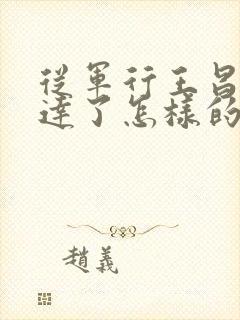 從軍行王昌
達了怎樣的
趙義